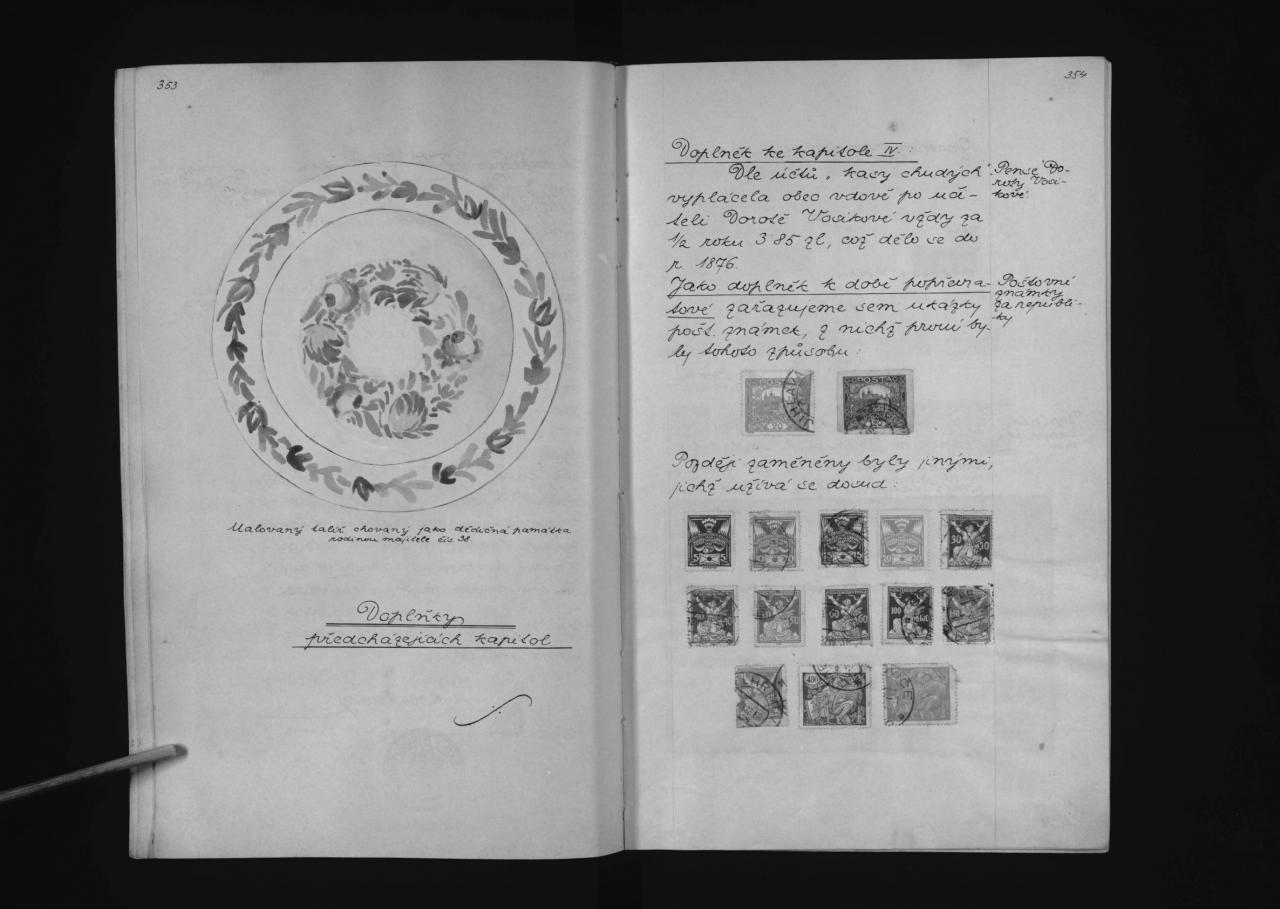 353
Malovaný talíř chovaný jako dědičná památka
rodinou majitele čís 38.
Doplňky
předcházejících kapitol
354
Doplněk ke kapitole IV.:
Dle účtů „kasy chudých“
vyplácela obec vdově po uči-
teli Dorotě Vosikové vždy za
1/2 roku 3·85 zl, což dělo se do
r. 1876.
Pense Do-
roty Vosi-
kové.
Jako doplněk k době popřevra-
tové zařazujeme sem ukázky
pošt. známek, z nichž první by-
ly tohoto způsobu:
Poštovní
známky
za republi-
ky
POSTA
JIHLAVA
20
POSTA
Později zaměněny byly jinými,
jichž užívá se dosud:
5 5
15 15
20 20
30 30
50
60 60
100 100
400